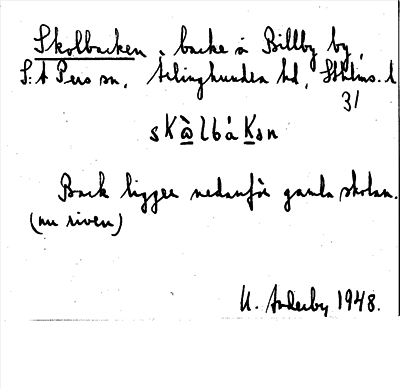 Skolbacken, backe i Billby by,
S:t Pers sn, Seminghundra hd, Sthlms. l
31
skὰlbákən
Back ligger nedanför gamla skolan.
(nu riven)
U. 1948.